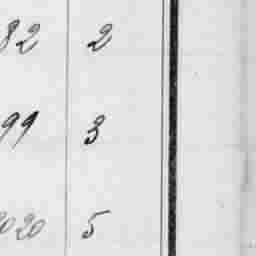 82 2
99 3
2020 5